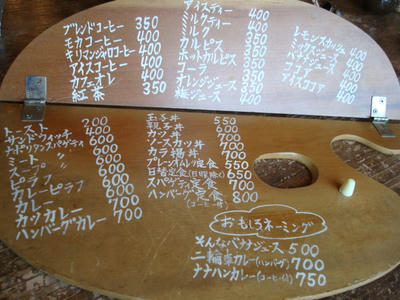 ブレンドコーヒー 350
モカコーヒー 400
キリマンジャロコーヒー 400
アイスコーヒー 400
カフェオレ 400
紅茶 350
アイスティー 400
ミルクティー 400
ミルク 400
カルピス 400
ホットカルピス 400
コーラ 400
オレンジジュース 400
梅ジュース 400
レモンスカッシュ 400
ミックスジュース 400
バナナジュース 400
ココア 400
アイスココア 400
トースト 200
サンドウィッチ 400
ナポリタンスパゲティ 600
ミート 〃 600
スープ 〃 600
ピラフ 600
カレーピラフ 650
カレー 600
カツカレー 700
ハンバーグカレー 700
玉子丼 550
親子丼 600
カツ丼 700
ソースカツ丼 700
カラ揚丼 700
定食 550
日替定食(日曜除く) 650
スパゲティ定食 700
ハンバーグ定食 800
(コーヒー付)
おもしろネーミング
そんなバナナジュース 500
二輪車カレー(ハンバーグ) 700
ナナハンカレー(コーヒー付) 750